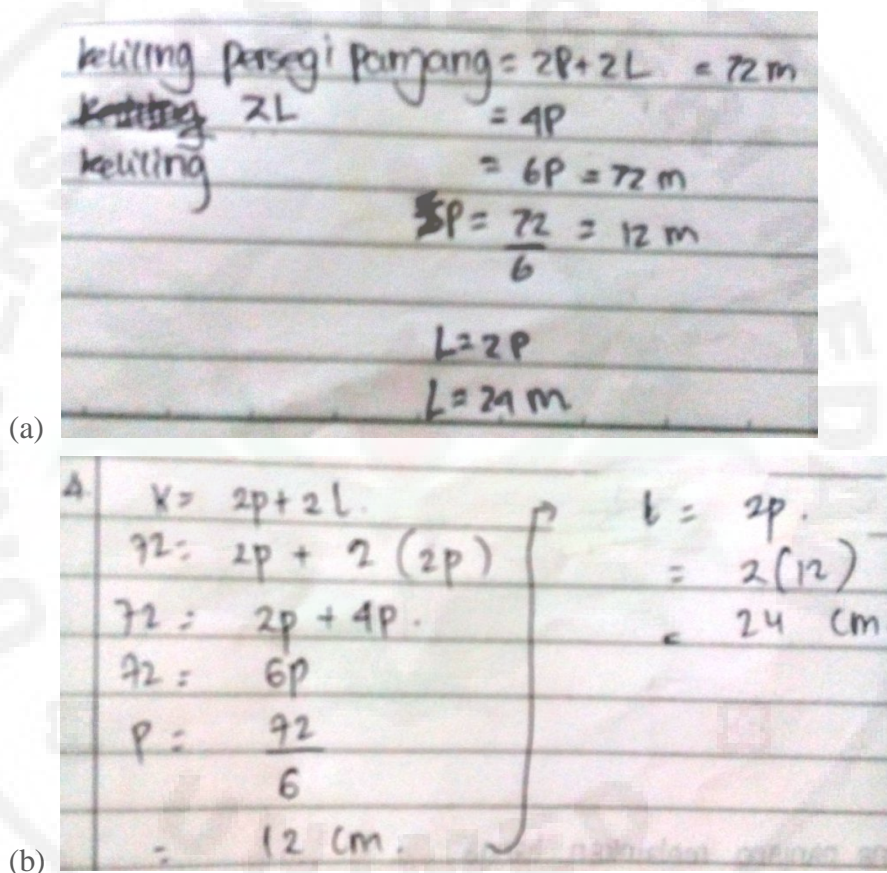 keliling persegi panjang = 2P + 2L = 72 m
2L = 4P
keliling = 6P = 72 m
P = 72 = 12 m
6
L = 2P
L = 24 m
(a)
4. K = 2p + 2l.
72 = 2p + 2 (2p)
72 = 2p + 4p.
72 = 6p
p = 72
6
= 12 cm.
l = 2p.
= 2(12)
= 24 cm
(b)